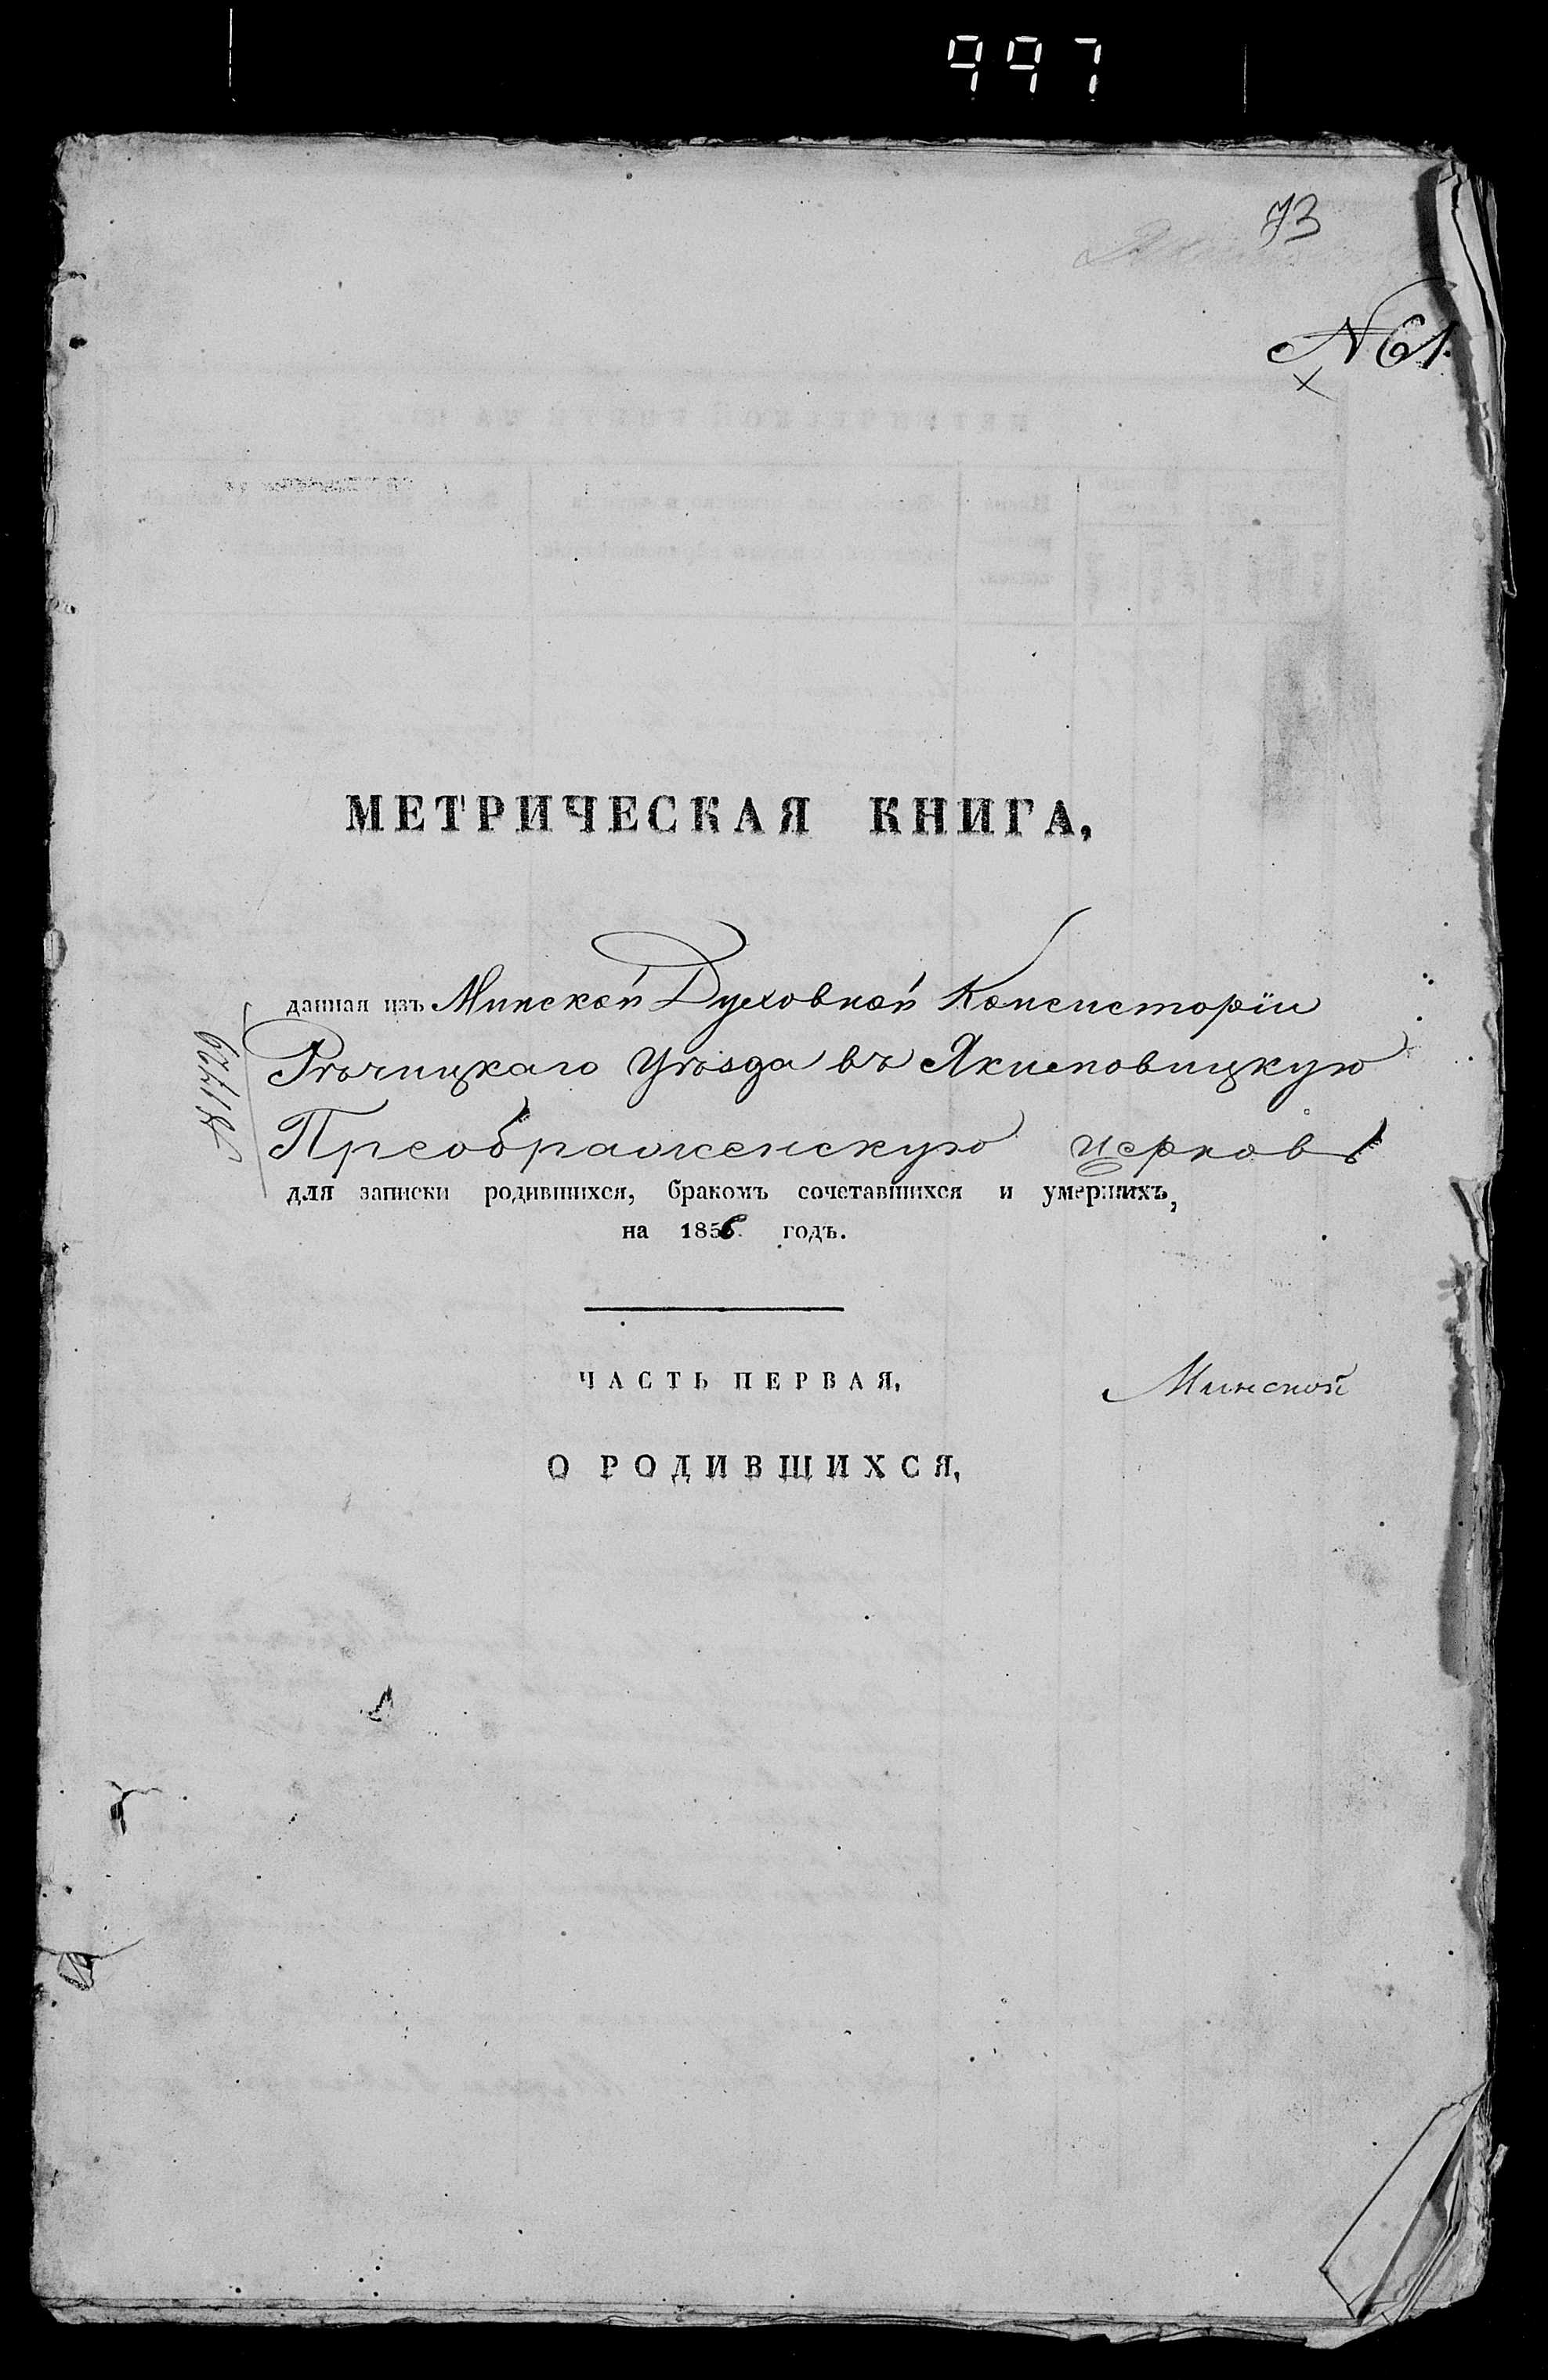 997
73
№ 61.
МЕТРИЧЕСКАЯ КНИГА,
данная изъ Минской Духовной Консисторіи
Рѣчицкаго Уѣзда въ Якимовицкую
Преображенскую церковь
№ 1729
для записки родившихся, бракомъ сочетавшихся и умершихъ,
на 1856 годъ.
ЧАСТЬ ПЕРВАЯ,
Минской
О РОДИВШИХСЯ,